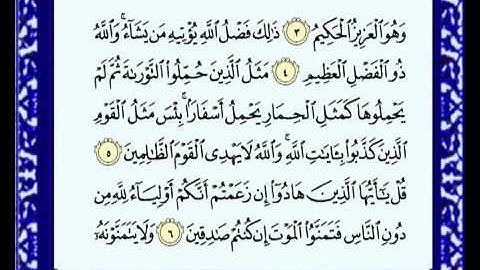 وَهُوَ ٱلْعَزِيزُ ٱلْحَكِيمُ ٣ ذَٰلِكَ فَضْلُ ٱللَّهِ يُؤْتِيهِ مَن يَشَآءُۚ وَٱللَّهُ
ذُو ٱلْفَضْلِ ٱلْعَظِيمِ ٤ مَثَلُ ٱلَّذِينَ حُمِّلُوا۟ ٱلتَّوْرَىٰةَ ثُمَّ لَمْ
يَحْمِلُوهَا كَمَثَلِ ٱلْحِمَارِ يَحْمِلُ أَسْفَارًاۢۚ بِئْسَ مَثَلُ ٱلْقَوْمِ
ٱلَّذِينَ كَذَّبُوا۟ بِـَٔايَٰتِ ٱللَّهِۚ وَٱللَّهُ لَا يَهْدِى ٱلْقَوْمَ ٱلظَّٰلِمِينَ ٥
قُلْ يَٰٓأَيُّهَا ٱلَّذِينَ هَادُوٓا۟ إِن زَعَمْتُمْ أَنَّكُمْ أَوْلِيَآءُ لِلَّهِ مِن
دُونِ ٱلنَّاسِ فَتَمَنَّوُا۟ ٱلْمَوْتَ إِن كُنتُمْ صَٰدِقِينَ ٦ وَلَا يَتَمَنَّوْنَهُۥٓ